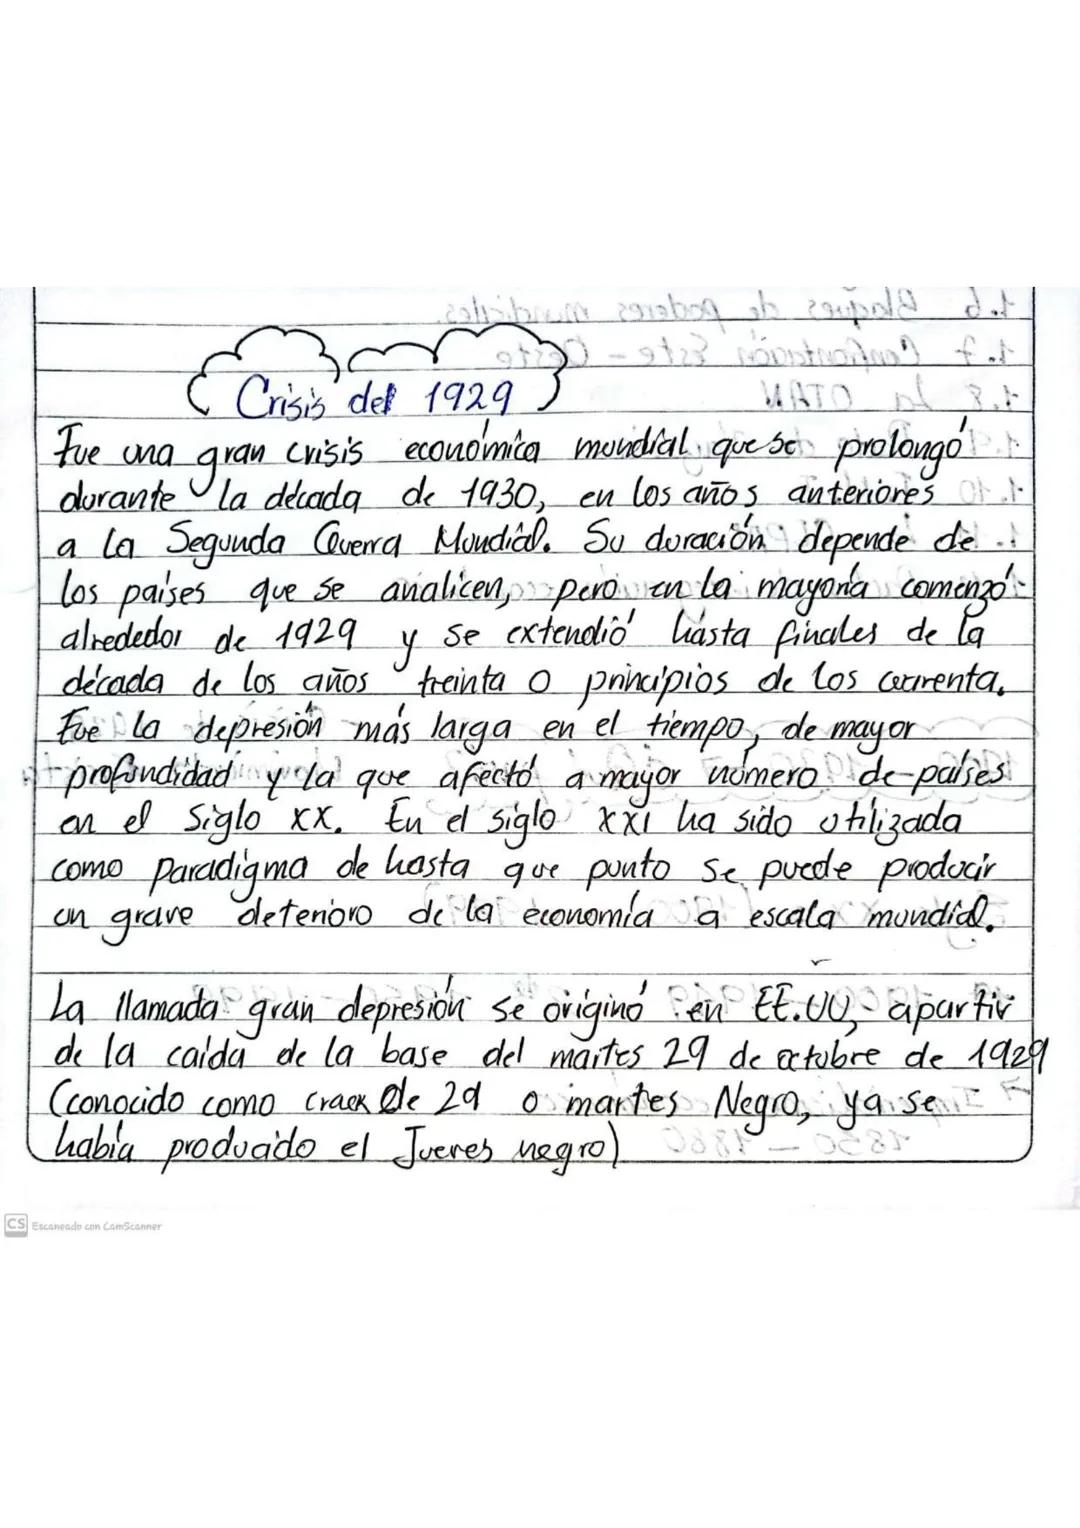 Crisis del 1929
Fue una gran crisis económica mundial que se prolongó
durante la década de 1930, en los años anteriores
a la Segunda Guerra Mundial. Su duración depende de
los países que se analicen, pero en la mayoría comenzó
alrededor de 1929 y se extendió hasta finales de la
década de los años treinta o principios de los cuarenta.
Fue la depresión más larga en el tiempo, de mayor
profundidad y la que afectó a mayor número de países
en el Siglo XX. En el siglo XXI ha sido utilizada
como paradigma de hasta que punto se puede producir
un grave deterioro de la economía a escala mundial.
La llamada gran depresión se originó en EE.UU, apartir
de la caída de la base del martes 29 de octubre de 1929
(conocido como crack de 29 o martes Negro, ya se
había producido el Jueves negro)
CS Escaneado con CamScanner